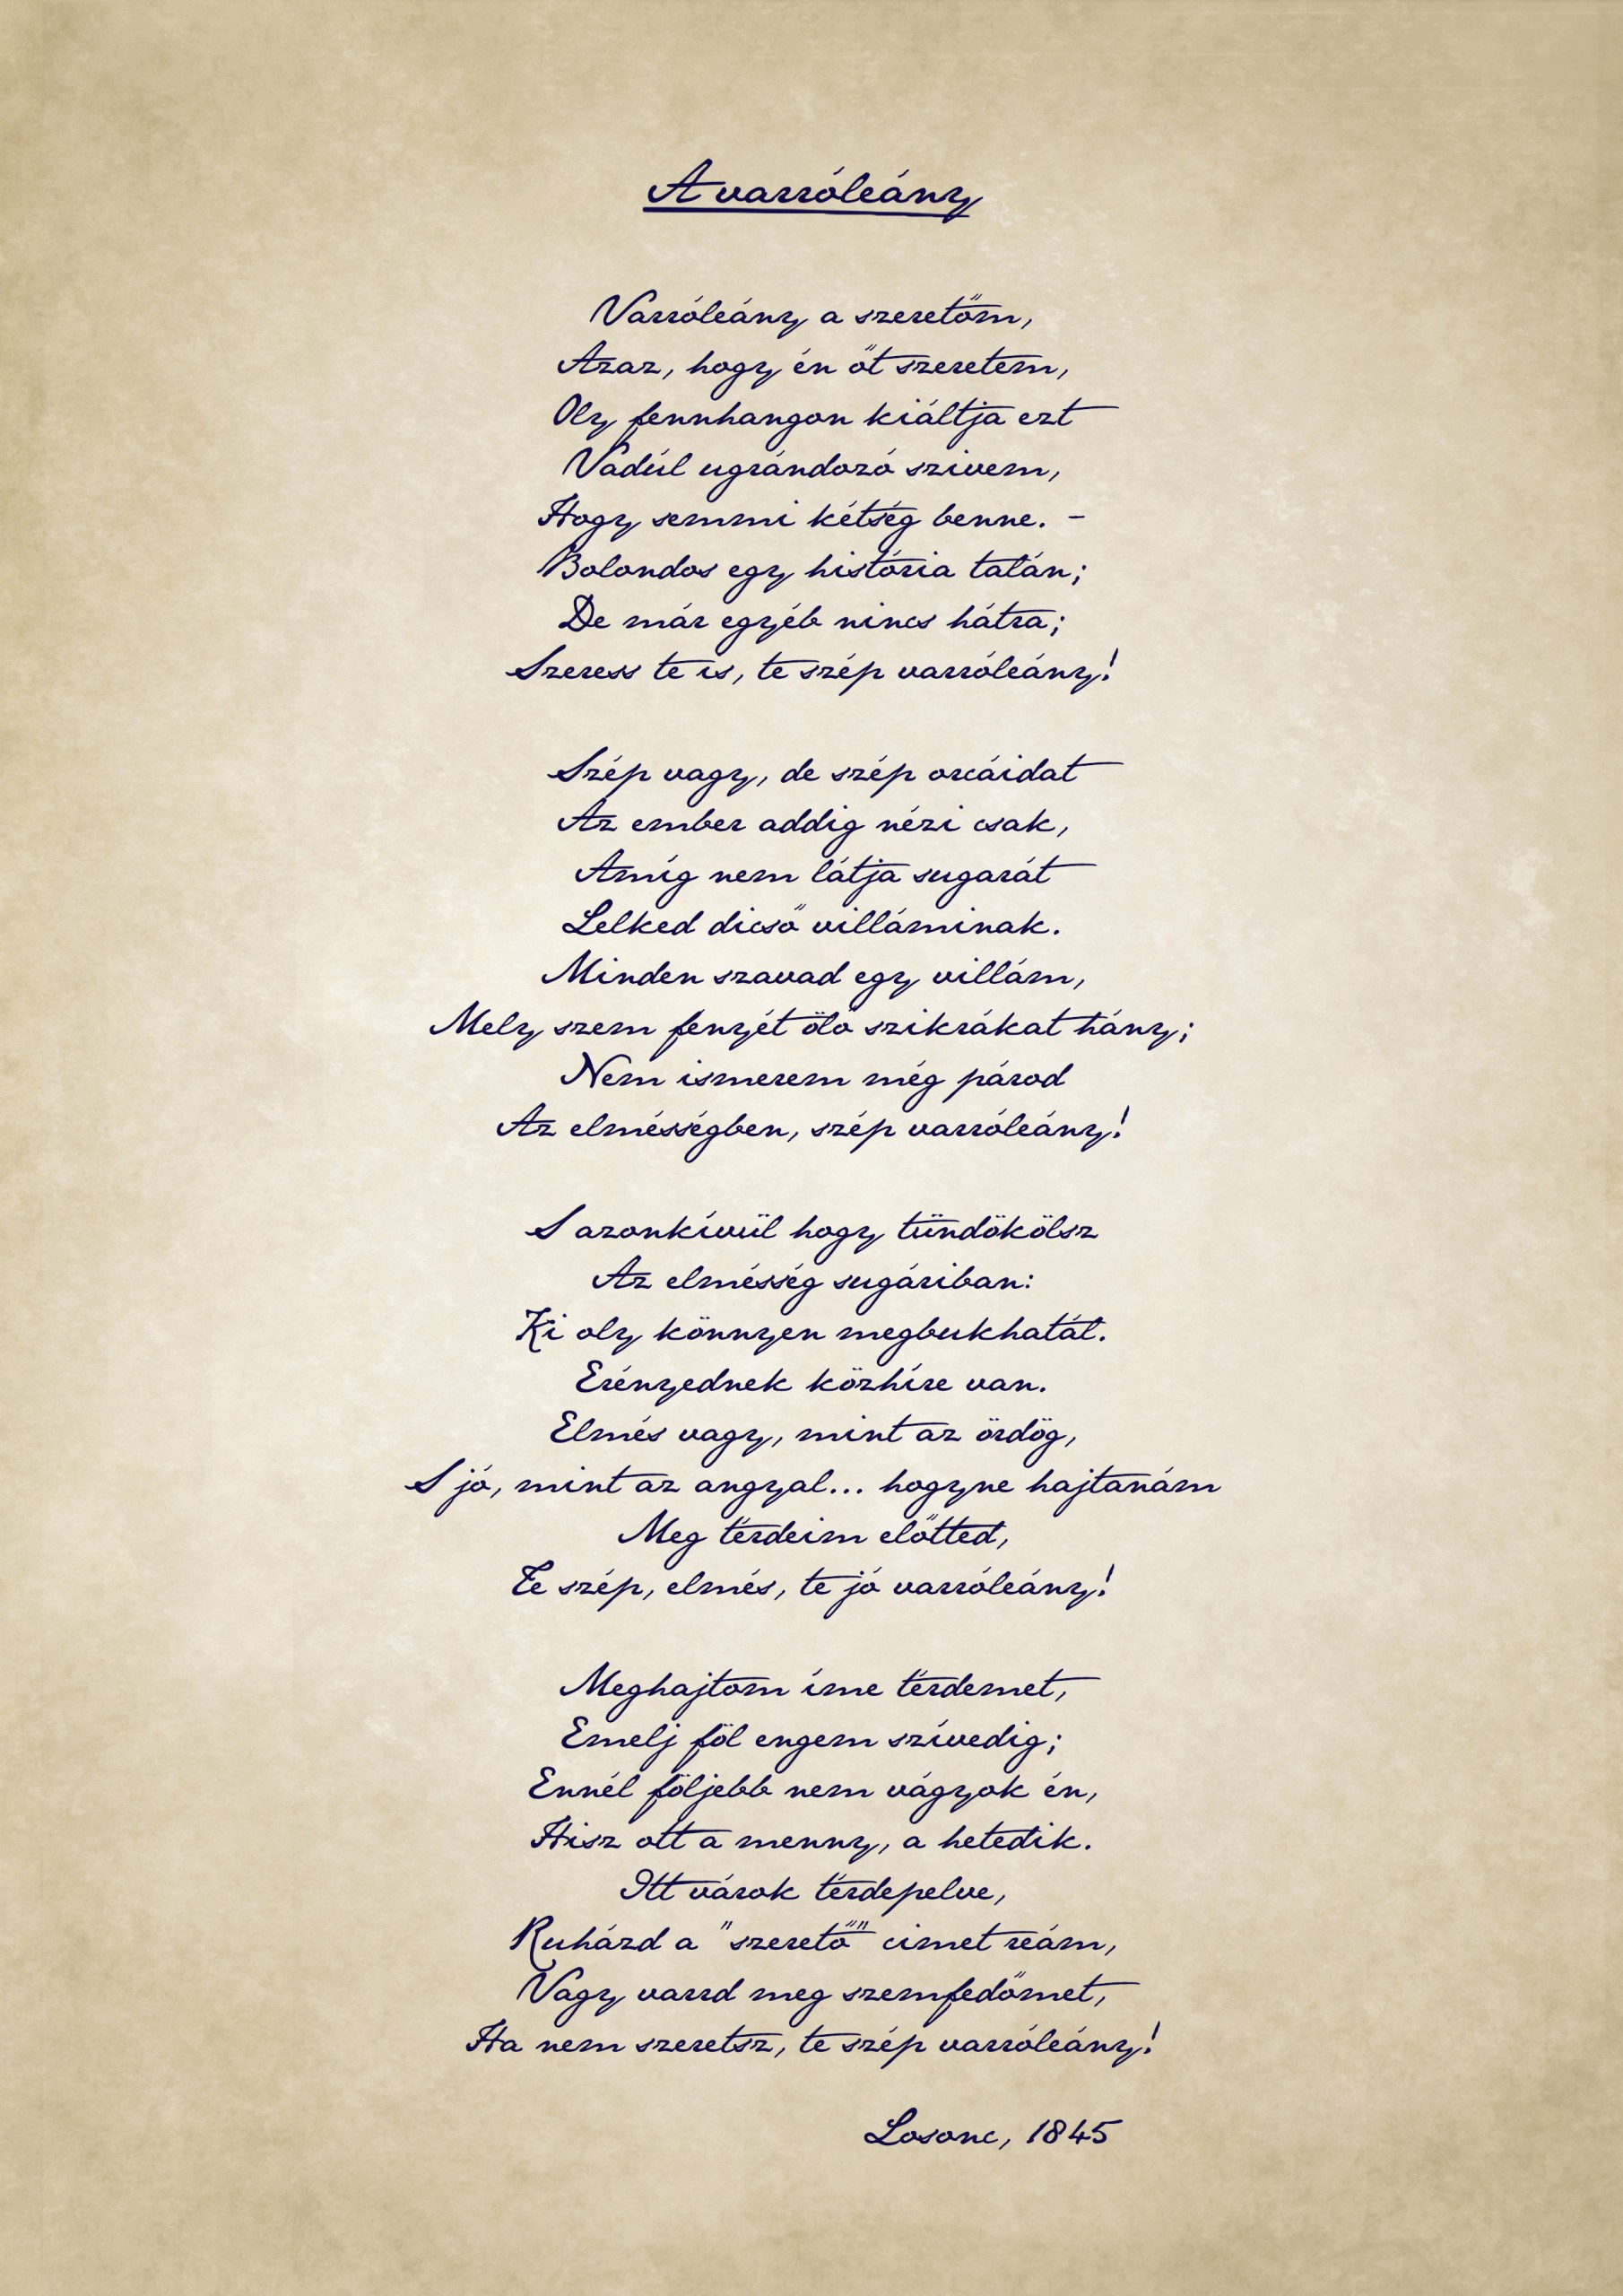 A varróleány
Varróleány a szeretőm,
Azaz, hogy én őt szeretem,
Oly fennhangon kiáltja ezt
Vadúl ugrándozó szivem,
Hogy semmi kétség benne. -
Bolondos egy história talán;
De már egyéb nincs hátra;
Szeress te is, te szép varróleány!
Szép vagy, de szép orcáidat
Az ember addig nézi csak,
Amíg nem látja sugarát
Lelked dicső villáminak.
Minden szavad egy villám,
Mely szem fenyét ölő szikrákat hány;
Nem ismerem még párod
Az elmésségben, szép varróleány!
S azonkívül hogy tündökölsz
Az elmésség sugáriban:
Ki oly könnyen megbukhatál.
Erényednek közhíre van.
Elmés vagy, mint az ördög,
S jó, mint az angyal... hogyne hajtanám
Meg térdeim előtted,
Te szép, elmés, te jó varróleány!
Meghajtom íme térdemet,
Emelj föl engem szívedig;
Ennél följebb nem vágyok én,
Hisz ott a menny, a hetedik.
Itt várok térdepelve,
Ruházd a "szerető" cimet reám,
Vagy varrd meg szemfedőmet,
Ha nem szeretsz, te szép varróleány!
Losonc, 1845